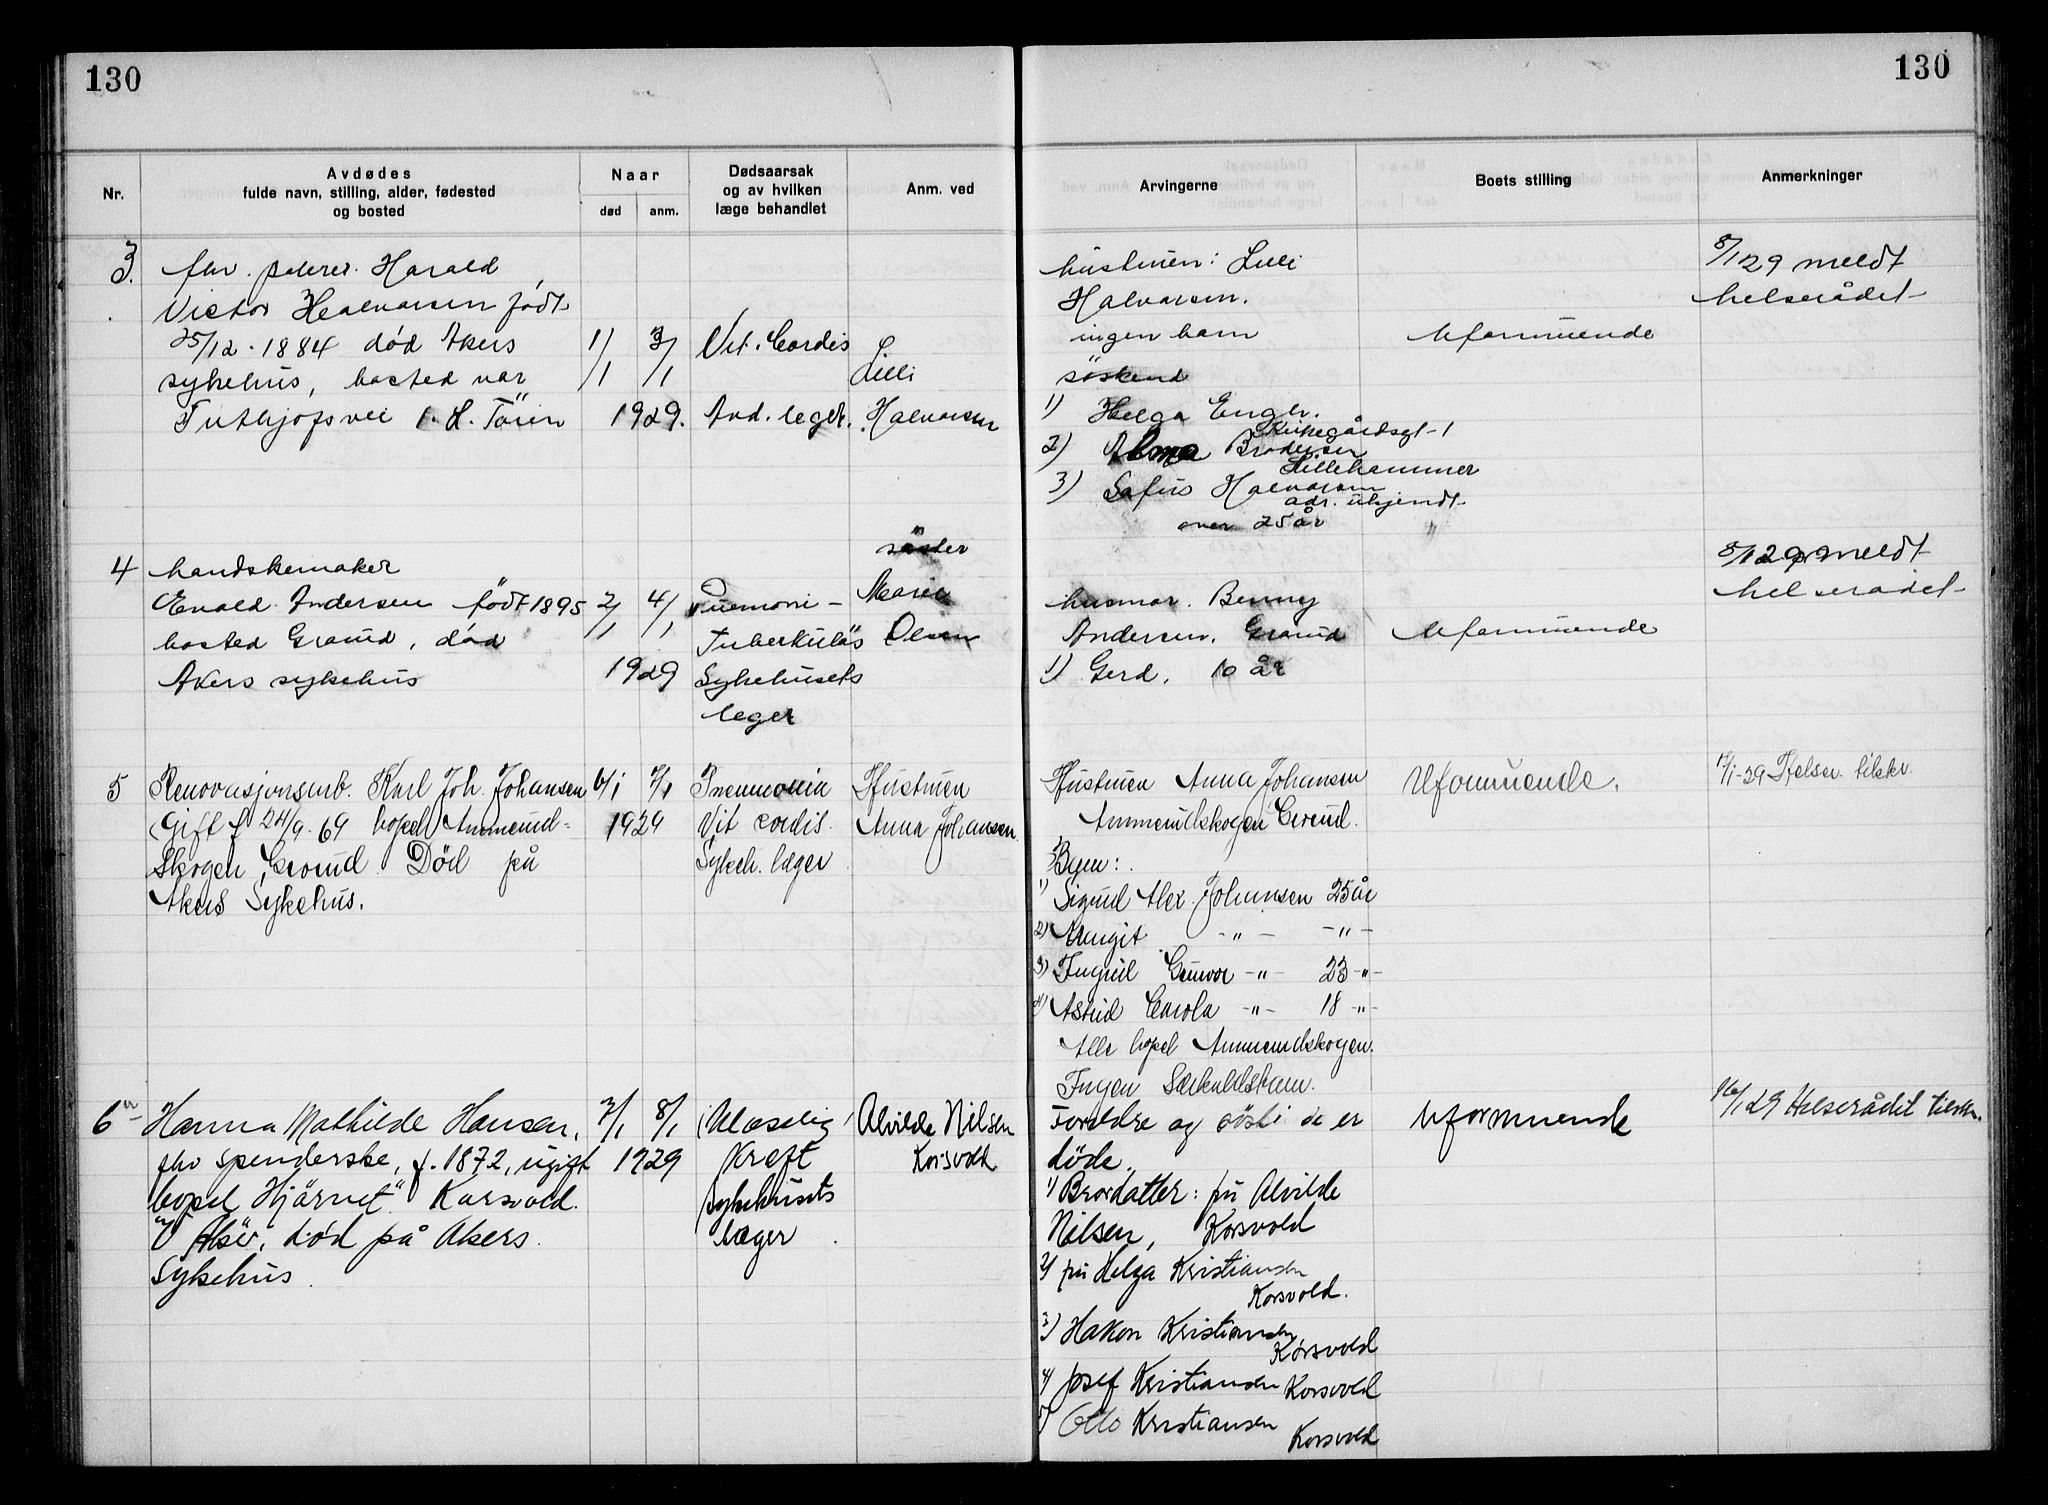 130
130
Nr.
Avdødes
fulde navn, stilling, alder, fødested
og bosted
Naar
død
anm.
Dødsaarsak
og av hvilken
læge behandlet
Anm. ved
Arvingerne
Boets stilling
Anmerkninger
3.
fhv. Harald
Victor Halvorsen född
25/12-1884 död Akers
sykehus, bosted var
1. H. Töien
1/1 3/1
1929.
Vit. Cordis
Avd. leger.
Lilli
Halvorsen
hustruen: Lilli
Halvorsen.
ingen barn
söskend
1) Helga Engh.
Kirkegårdsgt-1
2) Alma Brodersen
Lillehammer
3) Sofus Halvorsen
adr. ukjendt
over 25 år
Uformuende
8/1 29 meldt
helserådet
4
handskemaker
Evald Andersen födt 1895
bosted Grorud, död
Akers sykehus
2/1 4/1
1929
Pnemoni-
Tuberkulös
Sykehusets
leger
söster
Marie
Olsen
husmor. Benny
Andersen. Grorud
1) Gerd. 10 år
Uformuende
8/1 29 meldt
helserådet
5
Renovasjonsarb. Karl Joh. Johansen
Gift f 24/9-69 bopel Ammerud-
skogen, Grorud. Död på
Akers Sykehus.
6/1 7/1
1929
Pneumonia
Vit cordis.
Sykeh. læger
Hustruen
Anna Johansen.
Hustruen Anna Johansen
Ammerudskogen Grorud.
Barn:
1) Sigurd Alex. Johansen 25 år
2) Margit -"- -"-
3) Ingrid Gunvor -"- 23 -"-
4) Astrid Carola -"- 18 -"-
Alle bopel Ammerudskogen.
Ingen Særkuldsbarn.
Uformuende.
/1-29 Helser. tilskr.
6
Hanna Mathilde Hansen,
fhv spenderske, f. 1872, ugift
bopel "Hjörnet" Korsvold.
død på Akers
Sykehus.
7/1 8/1
1929
Kreft
Sykehusets
læger
Alvilde Nilsen
Korsvold
Foreldre og de er
döde.
1) Brordatter: fru Alvilde
Nilsen, Korsvold
2) fru Helga Kristiansen
Korsvold.
3) Håkon Kristiansen,
Korsvold
4) Josef Kristiansen Korsvold
5) Otto Kristiansen
Korsvold
Uformuende
16/1 29 Helserådet tilskr.